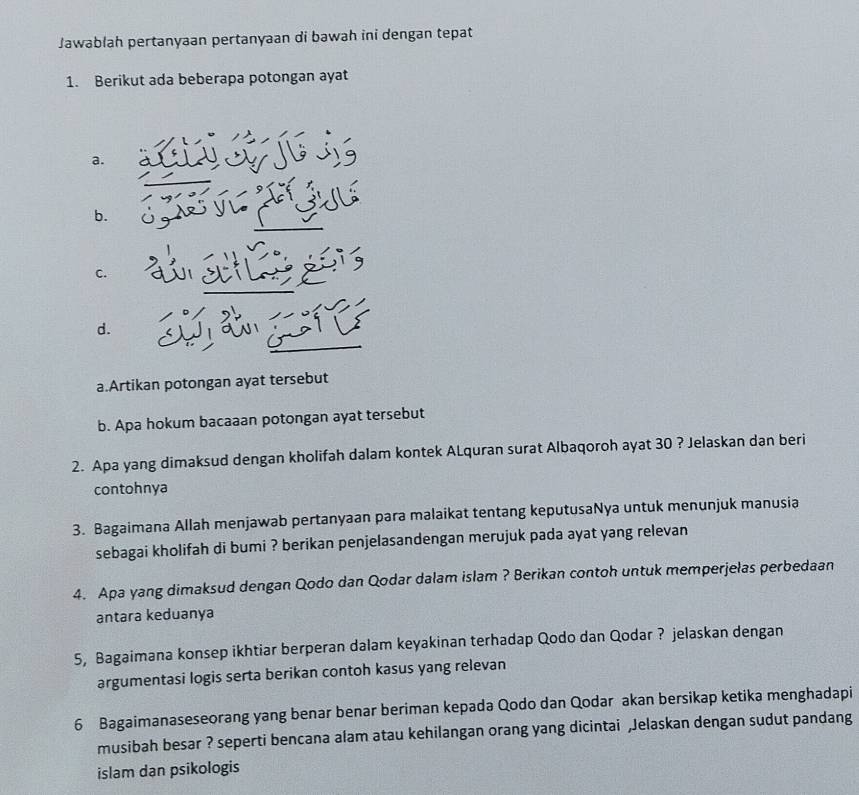 Jawablah pertanyaan pertanyaan di bawah ini dengan tepat
1. Berikut ada beberapa potongan ayat
a. وَإِذْ قَالَ رَبُّكَ لِلْمَلٰٓئِكَةِ
b. قَالَ إِنِّيٓ أَعْلَمُ مَا لَا تَعْلَمُونَ
c. وَٱبْتَغِ فِيمَآ ءَاتَىٰكَ ٱللَّهُ
d. كَمَآ أَحْسَنَ ٱللَّهُ إِلَيْكَ
a.Artikan potongan ayat tersebut
b. Apa hokum bacaaan potongan ayat tersebut
2. Apa yang dimaksud dengan kholifah dalam kontek ALquran surat Albaqoroh ayat 30 ? Jelaskan dan beri
contohnya
3. Bagaimana Allah menjawab pertanyaan para malaikat tentang keputusaNya untuk menunjuk manusia
sebagai kholifah di bumi ? berikan penjelasandengan merujuk pada ayat yang relevan
4. Apa yang dimaksud dengan Qodo dan Qodar dalam islam ? Berikan contoh untuk memperjelas perbedaan
antara keduanya
5, Bagaimana konsep ikhtiar berperan dalam keyakinan terhadap Qodo dan Qodar ? jelaskan dengan
argumentasi logis serta berikan contoh kasus yang relevan
6 Bagaimanaseseorang yang benar benar beriman kepada Qodo dan Qodar akan bersikap ketika menghadapi
musibah besar ? seperti bencana alam atau kehilangan orang yang dicintai ,Jelaskan dengan sudut pandang
islam dan psikologis